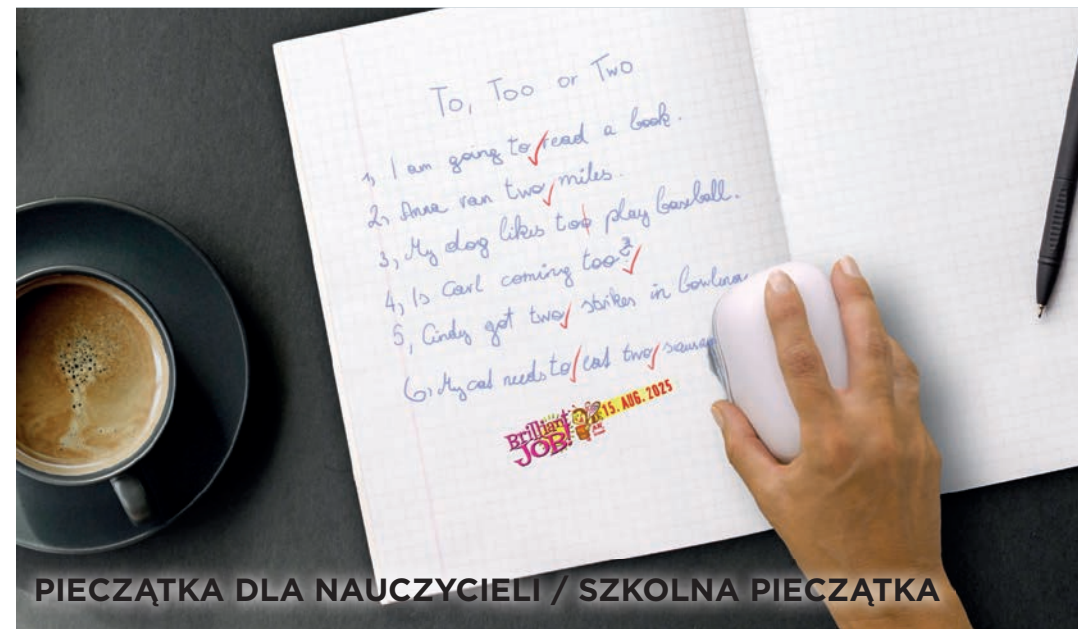 To, Too or Two
1, I am going to read a book.
2, Anna ran two miles.
3, My dog likes too play baseball.
4, Is Carl coming too?
5, Cindy got two strikes in bowling
6, My cat needs to eat two
Brilliant
JOB!
15. AUG. 2025
PIECZĄTKA DLA NAUCZYCIELI / SZKOLNA PIECZĄTKA